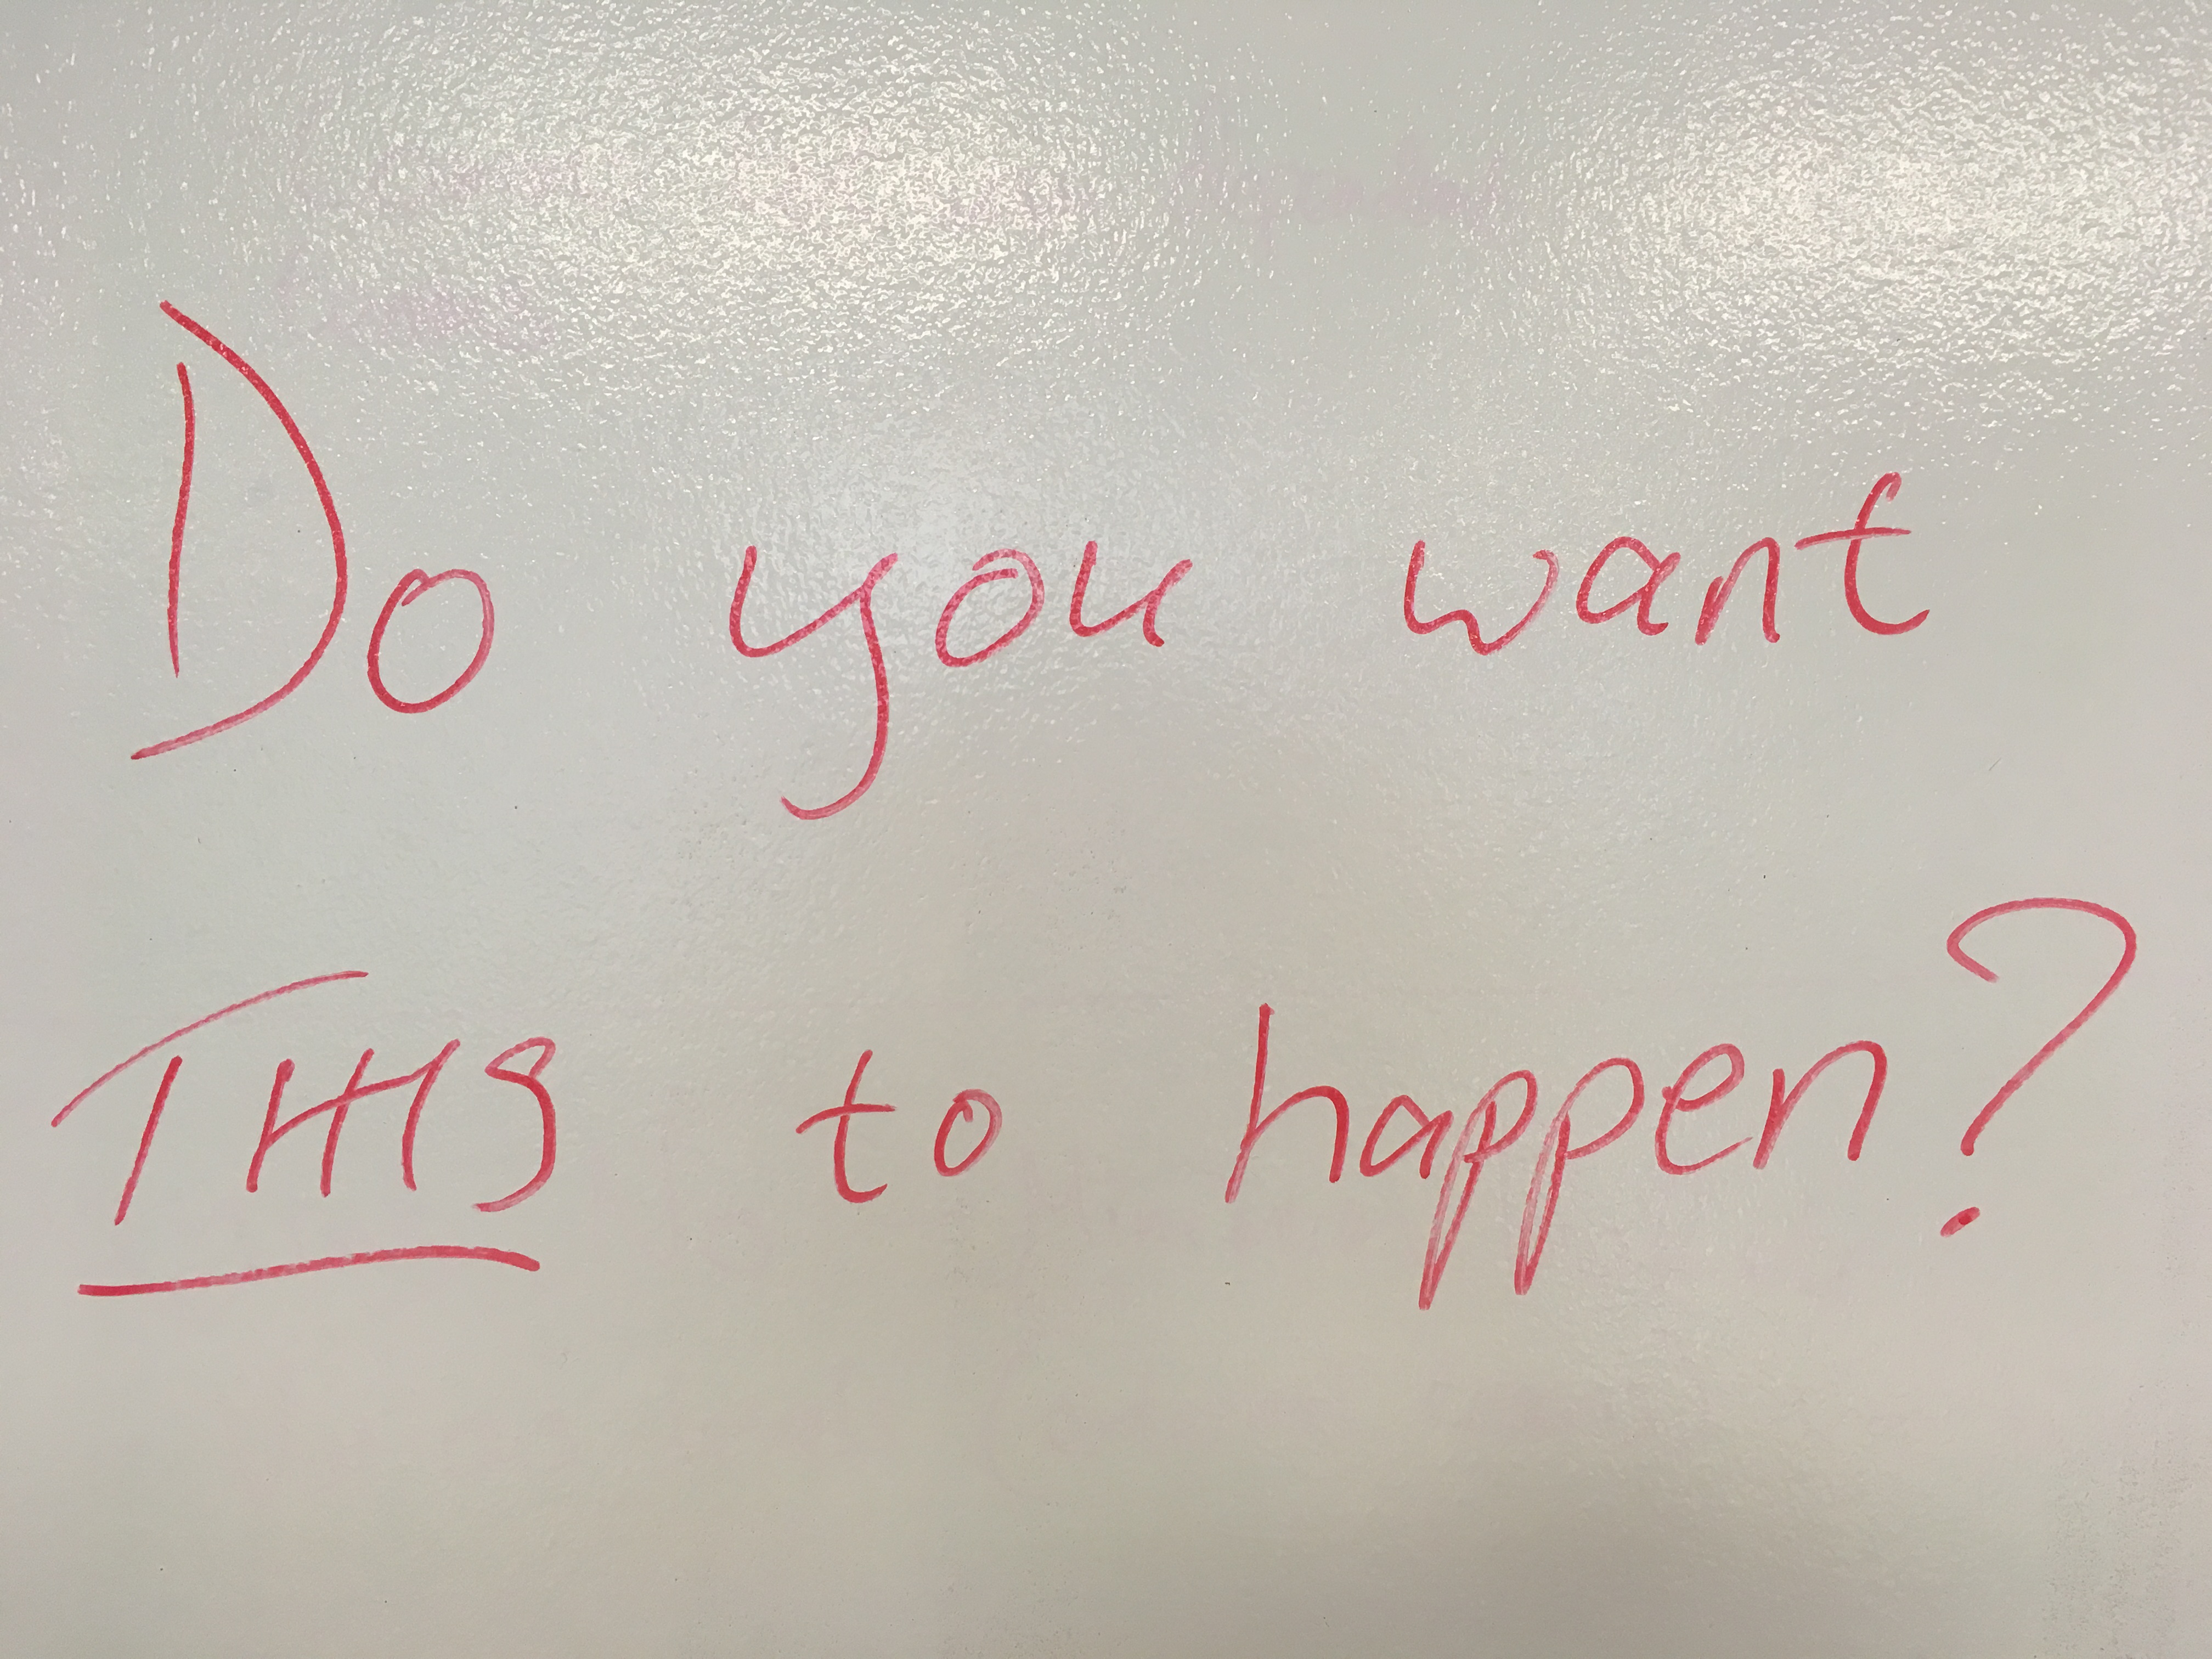 Do you want
THIS to happen?